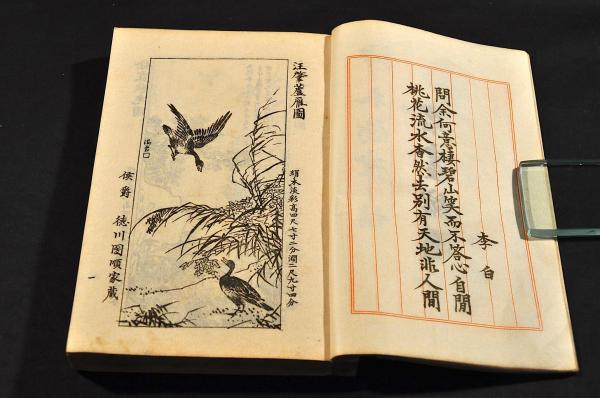 李白
問余何意棲碧山笑而不答心自閒
桃花流水杳然去別有天地非人間
汪肇蘆雁圖
絹本淡彩高四尺七寸二分濶二尺九寸四分
侯爵 德川圀順家藏
一